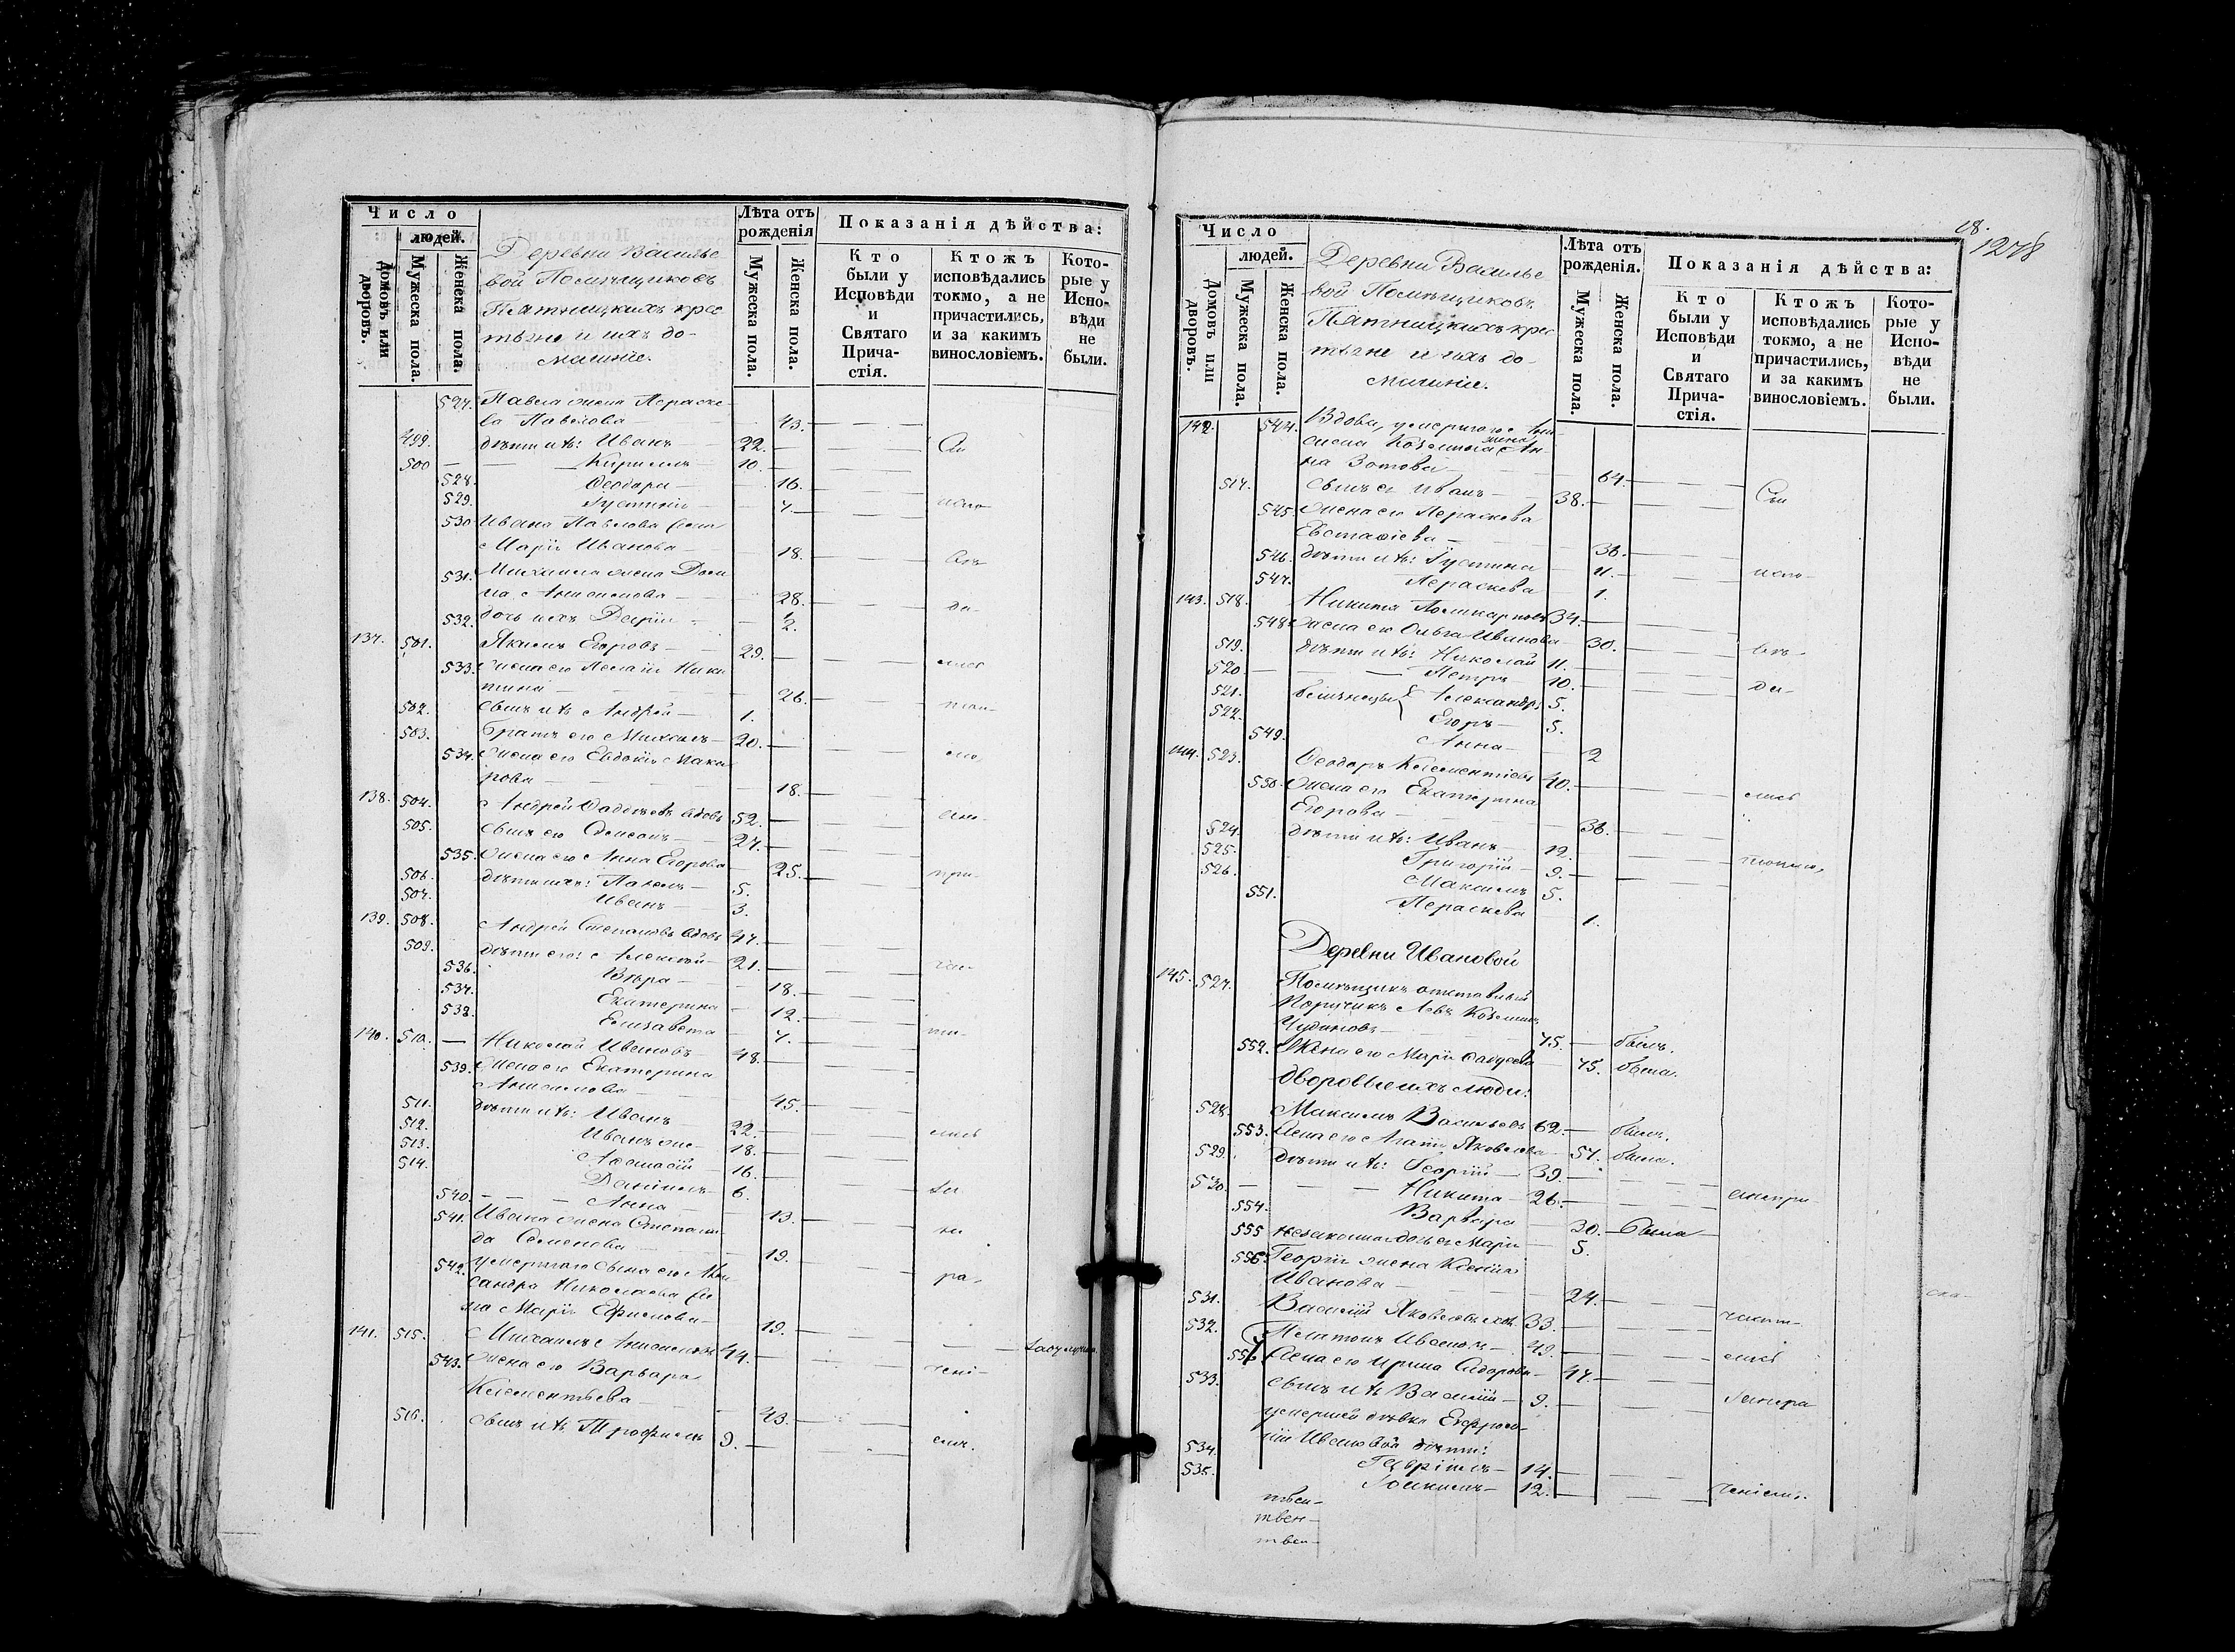 Число
людей.
Домовъ или дворовъ.
Мужеска пола.
Женска пола.
Деревни Василье
вой Помѣщиковъ
Пятницкихъ крес
тьяне и ихъ до-
машніе.
Лѣта отъ рожденія
Мужеска пола.
Женска пола.
Показанія дѣйства:
Кто были у Исповѣди и Святаго Прича-стія.
Ктожъ исповѣдались токмо, а не причастились, и за какимъ винословіемъ.
Кото-рые у Испо-вѣди не были.
527. Павла жена Параске-
ва Павлова 43.
499. дѣти ихъ: Иванъ 22.
500 Кириллъ 10.
528. Ѳеодора 16.
529. Іустинія 7.
530 Ивана Павлова жена
Марія Иванова 18.
531. Михаила жена Дом
на Анисимова 28.
532. дочь ихъ Дарія 2.
137. 501. Якимъ Егоровъ 29.
533. Жена его Пелагія Ники
тина 26.
502. сынъ ихъ Андрей 1.
503. Братъ его Михаилъ 20.
534. Жена его Евдокія Мака
рова 18.
138. 504. Андрей Ѳаддѣевъ вдовъ 52.
505. сынъ его Симеонъ 27.
535. Жена его Анна Егорова 25.
506. дѣти ихъ: Павелъ 5.
507. Иванъ 3.
139. 508. Андрей Степановъ вдовъ 47.
509. дѣти его: Алексѣй 21.
536. Вѣра 18.
537. Екатерина 12.
538. Елизавета 7.
140. 510. Николай Ивановъ 48.
539. Жена его Екатерина
Анисимова 45.
511. дѣти ихъ: Иванъ 22.
512. Иванъ же 18.
513. Аѳанасій 16.
514. Даніилъ 6.
540. Анна 13.
541. Ивана жена Степани
да Семенова 19.
542. умершаго сына его Алек
сандра Николаева же
на Марія Ефимова 19.
141. 515. Михаилъ Анисимовъ 44.
543. Жена его Варвара
Клементьева 43.
516. сынъ ихъ Трофимъ 9.
18.
1278
Число
людей.
Домовъ или дворовъ.
Мужеска пола.
Женска пола.
Деревни Василье
вой Помѣщиковъ
Пятницкихъ крес
тьяне и ихъ до-
машніе.
Лѣта отъ рожденія.
Мужеска пола.
Женска пола.
Показанія дѣйства:
Кто были у Исповѣди и Святаго Прича-стія.
Ктожъ исповѣдались токмо, а не причастились, и за какимъ винословіемъ.
Кото-рые у Испо-вѣди не были.
142 544. Вдова, умершаго
Козьмина жена Ан
на Зотова 64.
517. сынъ ея Иванъ 38.
545 Жена его Параскева
Евстафіева 36.
546. дѣти ихъ: Іустина 11.
547. Параскева 1.
143. 518. Никита Поликарповъ 34.
548. Жена его Ольга Иванова 30.
519. дѣти ихъ: Николай 11.
520 Петръ 10.
521. близнецы Александръ 5.
522. Егоръ 5.
549. Анна 2
144. 523. Ѳеодоръ Клементіевъ 40.
550. Жена его Екатерина
Егорова 36.
524. дѣти ихъ: Иванъ 12.
525. Григорій 9.
526. Максимъ 5.
551. Параскева 1.
Деревни Ивановой
145. 527. Помѣщикъ отставный
Поручикъ Левъ Козьминъ
Чудиновъ 75. былъ.
552. Жена его Марія Ѳаддеева 75. была.
дворовые ихъ люди:
528. Максимъ Васильевъ 62. былъ.
553. Жена его Агатія Яковлева 57. была.
529. дѣти ихъ: Георгій 39.
530. Никита 26.
554. Варвара 30. была
555 незаконная дочь ея Марія 5.
556 Георгія жена Ксенія
Иванова 24.
531. Василій Яковлевъ холостъ 33.
532. Платонъ Ивановъ 49.
557 Жена его Ирина Сидорова 47.
533. сынъ ихъ Василій 9.
умершей дѣвки Евфроси-
ніи Ивановой дѣти:
534. Гавріилъ 14.
535. Іоакимъ 12.